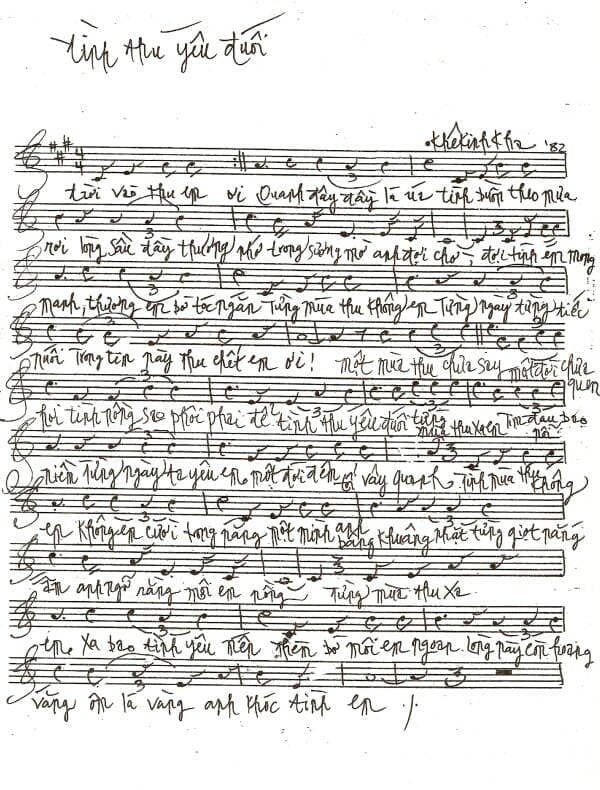 tình thu yếu đuối
Khê Kinh Kha '82
trời vào thu em ơi Quanh đây đầy lá úa tình buồn theo mùa
rơi lòng sầu đầy thương nhớ trong sương mờ anh đợi chờ, đợi tình em mong
manh, thương em bờ tóc ngắn Từng mùa thu không em Từng ngày từng tiếc
nuối Trong tim này thu chết em ơi! một mùa thu chưa say một đời chưa quen
hơi tình nồng sao phôi phai để tình thu yếu đuối từng mùa thu xa em Tim đau bao nỗi
niềm Từng ngày ta yêu em một đời đêm vây quanh Tình mùa thu không
em Không em cười trong nắng một mình anh bâng khuâng nhặt từng giọt nắng
ấm anh ngỡ rằng môi em nồng Từng mùa thu xa
em. Xa bao tình yêu mến thèm bờ môi em ngoan. lòng này còn hoang
vắng ôm lá vàng anh khóc tình em ./.